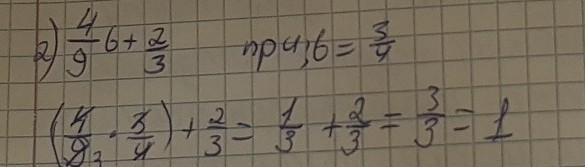 2) 4/9 b + 2/3 при, b = 3/4
(4/9₃ · 3/4) + 2/3 = 1/3 + 2/3 = 3/3 = 1